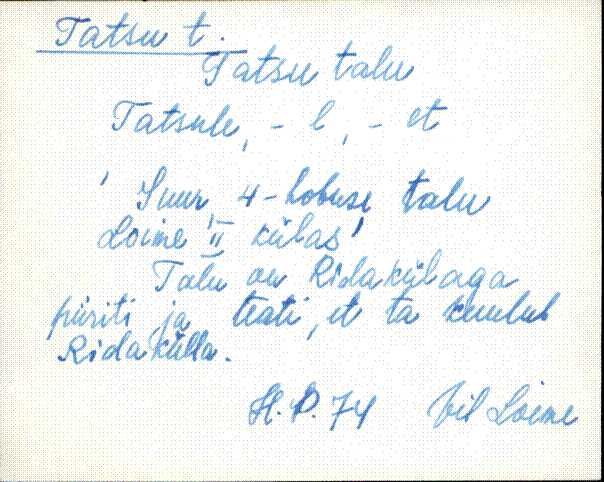 Tatsu t.
Tatsu talu
Tatsule, - l, - et
' Suur 4-hobuse talu
Loime II külas'
Talu on Ridakülaga
piiriti ja teati, et ta kuulub
Ridakülla.
H. P. 74 Vil Loime